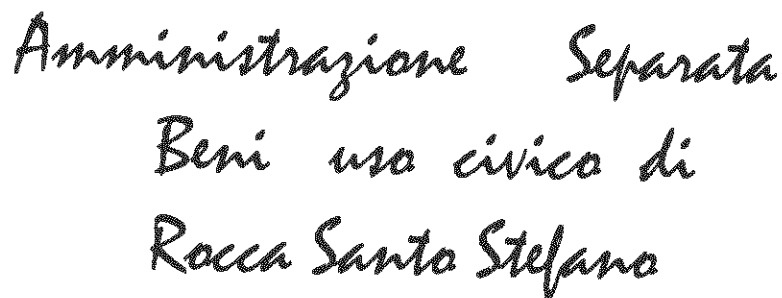 Amministrazione Separata
Beni uso civico di
Rocca Santo Stefano